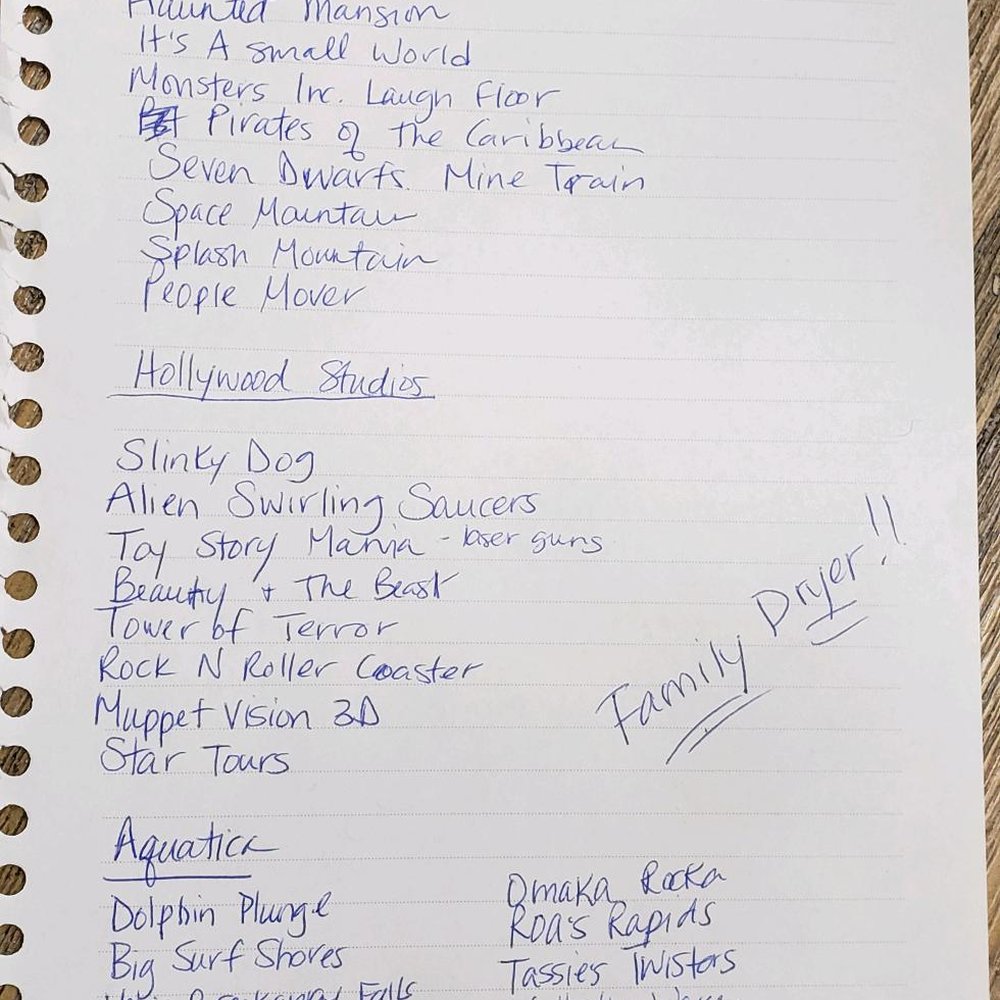 Haunted Mansion
It's A Small World
Monsters Inc. Laugh Floor
Pirates of the Caribbean
Seven Dwarfs Mine Train
Space Mountain
Splash Mountain
People Mover
Hollywood Studios
Slinky Dog
Alien Swirling Saucers
Toy Story Mania - laser guns
Beauty + The Beast
Tower of Terror
Rock N Roller Coaster
Muppet Vision 3D
Star Tours
Family Dryer!!
Aquatica
Dolphin Plunge
Big Surf Shores
Breakaway Falls
Omaka Rocka
Roa's Rapids
Tassie's Twisters